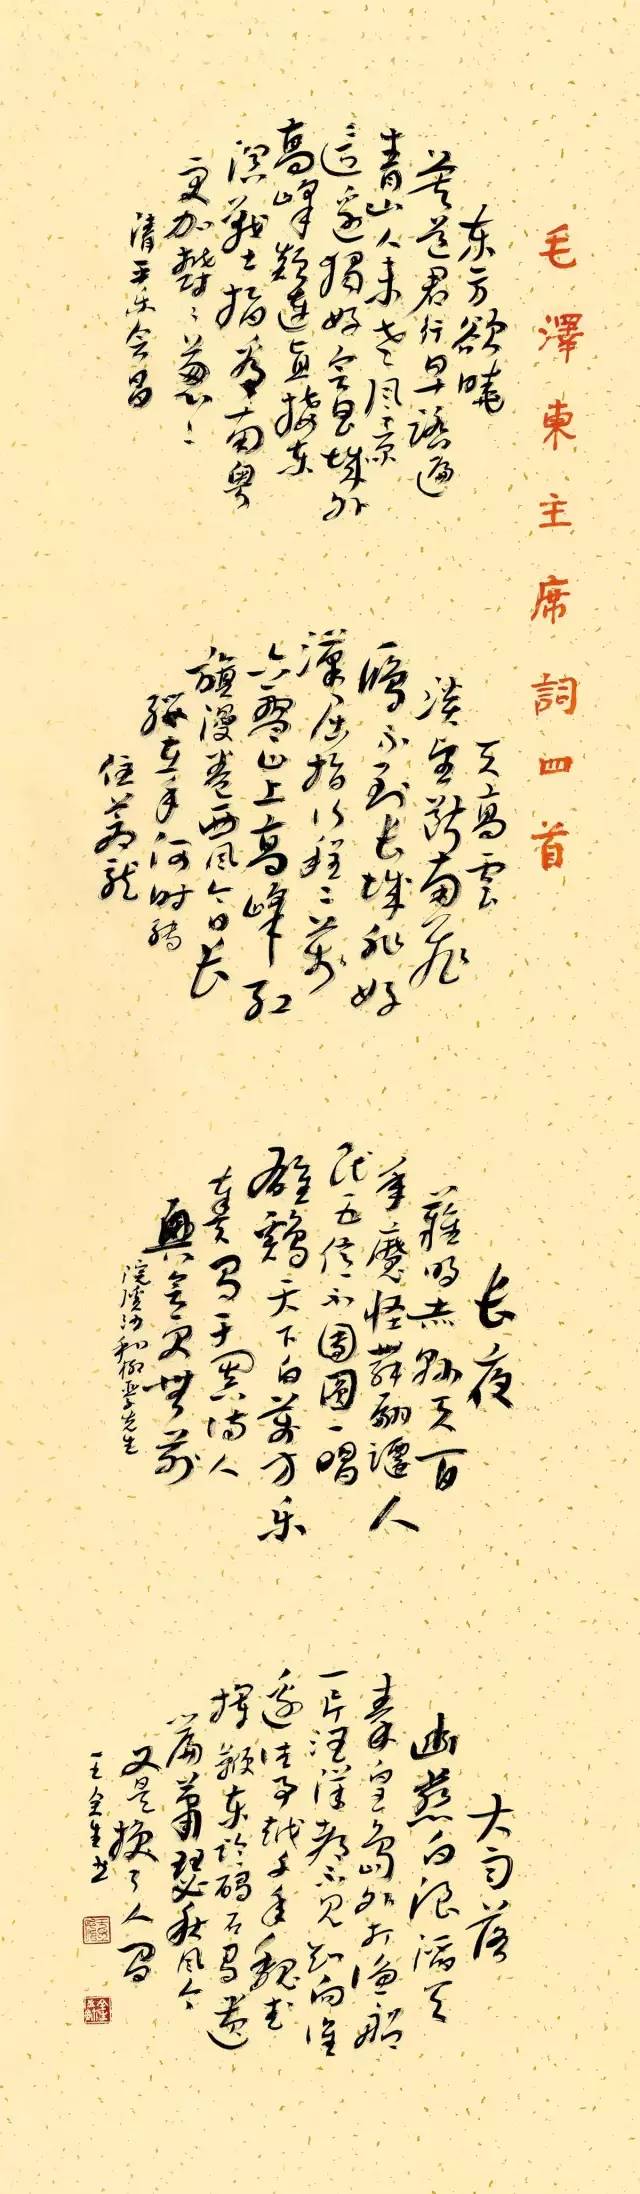 毛澤東主席詞四首
东方欲晓
莫道君行早踏遍
青山人未老风景
這邊獨好会昌城外
高峰颠连直接东
溟战士指看南粤
更加欝〻葱〻
清平乐会昌
天高雲
淡望断南飛
雁不到长城非好
漢屈指行程二萬
六盤山上高峰红
旗漫卷西风今日长
缨在手何时缚
住苍龙
长夜
難明赤縣天百
年魔怪舞翩躚人
民五億不團圓一唱
雄鷄天下白萬方乐
奏有于闐诗人
興會更無前
浣溪沙和柳亞子先生
大雨落
幽燕白浪滔天
秦皇島外打漁船
一片汪洋都不見知向谁
邊往事越千年魏武
揮鞭东临碣石有遺
篇蕭瑟秋风今
又是换了人間